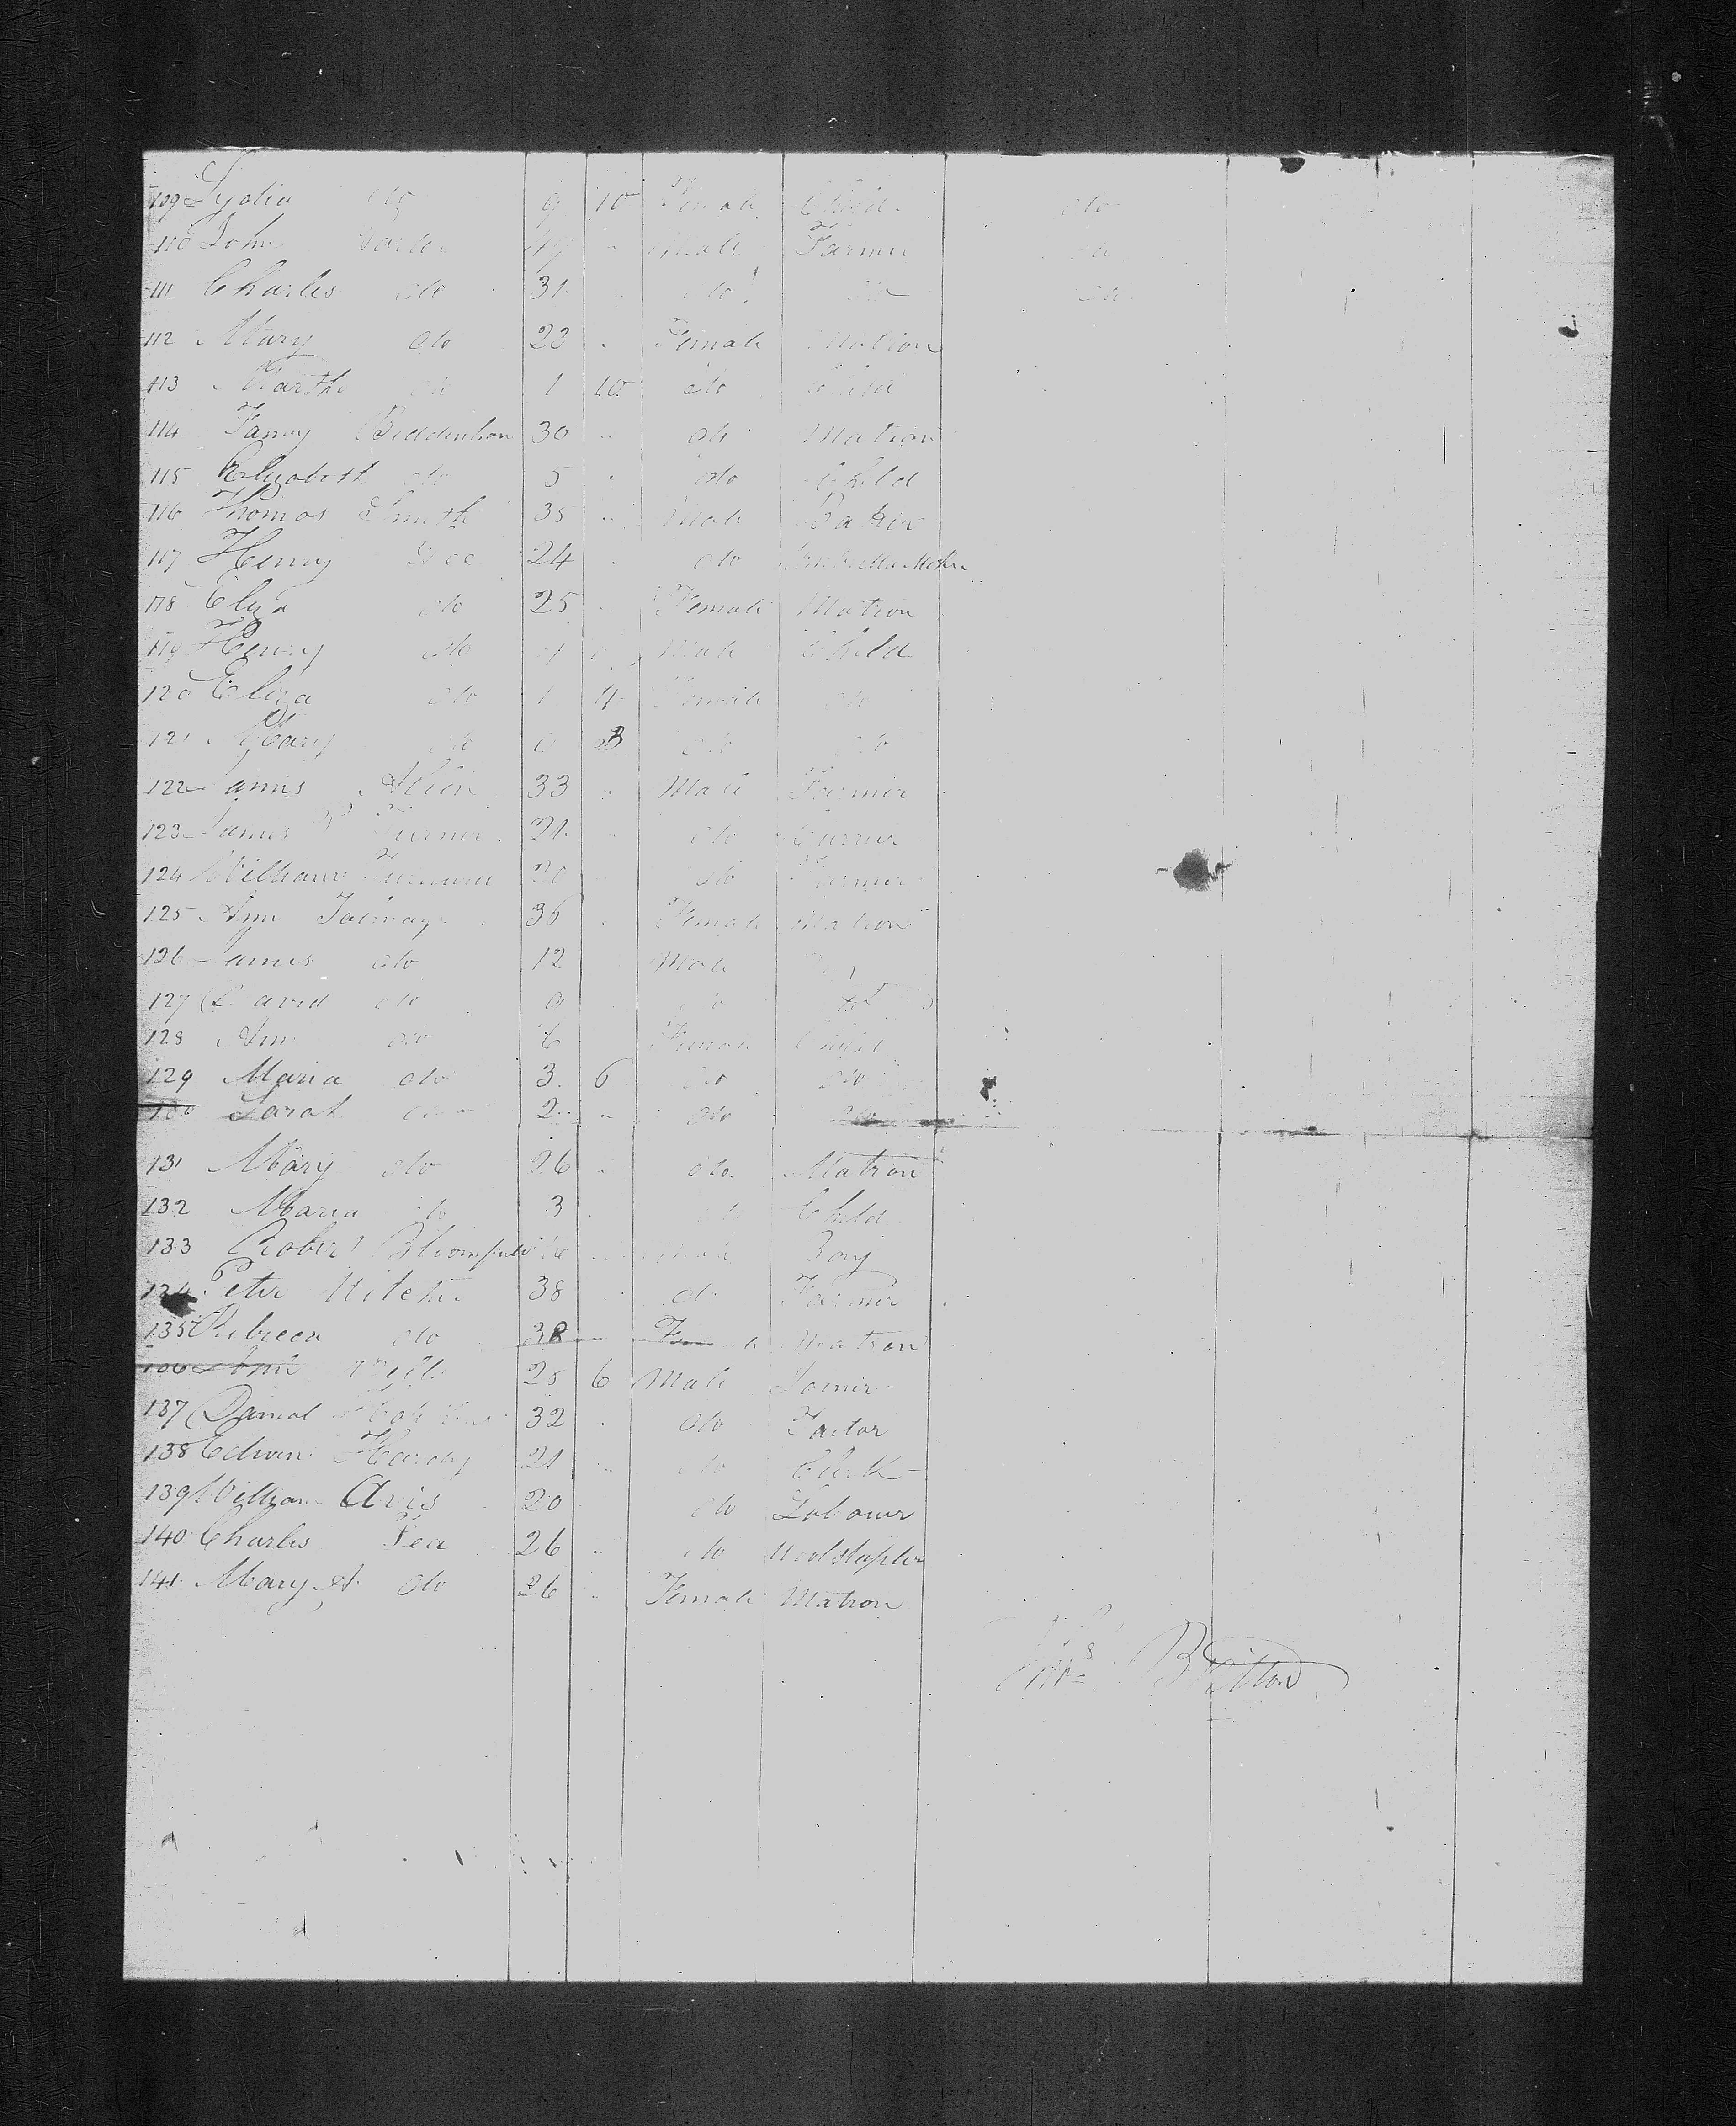 109 Lydia do 9 10 Female Child do
110 John Male Farmer do
111 Charles do 31 do do do
112 Mary do 23 Female Matron
113 Martha do 1 10 do Child
114 Fanny 30 do Matron
115 Elizabeth do 5 do Child
116 Thomas Smith 35 Male Baker
117 Henry 24 do Umbrella Maker
118 Eliza do 25 Female Matron
119 Henry do 4 Male Child
120 Eliza do 1 4 Female do
121 Mary do 0 3 do do
122 James Allen 33 Male Farmer
123 James Turner 21 do Currier
124 William 20 do Farmer
125 Ann 36 Female Matron
126 James do 12 Male Boy
127 David do 9 do do
128 Ann do 6 Female Child
129 Maria do 3 6 do do
130 Sarah do 2 do do
131 Mary do 26 do Matron
132 Maria do 3 do Child
133 Robert Bloomfield 16 Male Boy
134 Peter 38 do Farmer
135 Rebecca do 38 Female Matron
136 John 20 6 Male Joiner
137 Daniel 32 do Tailor
138 Edwin Hardy 21 do Clerk
139 William Avis 20 do Labourer
140 Charles 26 do Woolstapler
141 Mary A. do 26 Female Matron